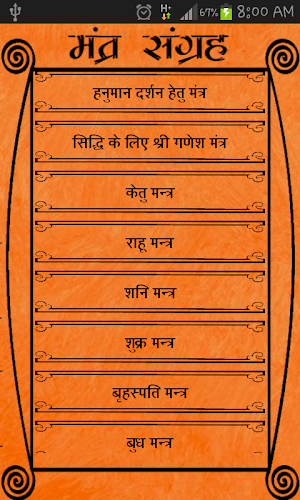 67% 8:00 AM
मंत्र संग्रह
हनुमान दर्शन हेतु मंत्र
सिद्धि के लिए श्री गणेश मंत्र
केतु मन्त्र
राहू मन्त्र
शनि मन्त्र
शुक्र मन्त्र
बृहस्पति मन्त्र
बुध मन्त्र